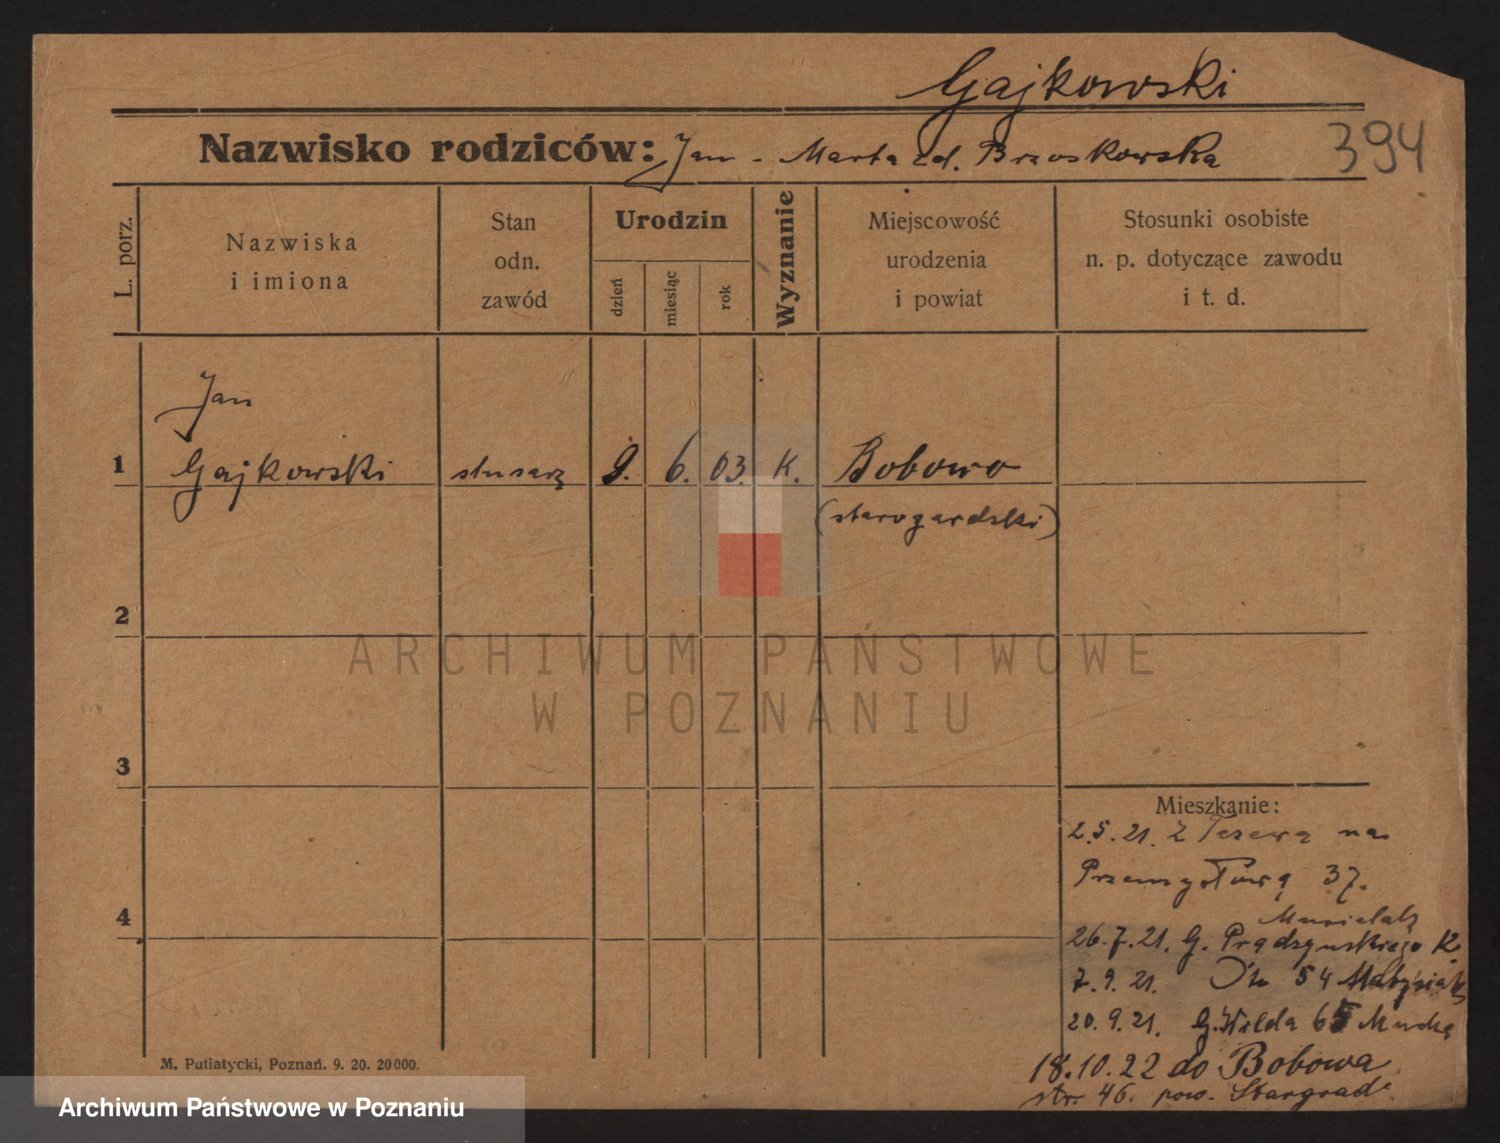 Gajkowski
394
Nazwisko rodziców: Jan - Marta zd. Brzoskowska
L. porz.
Nazwiska
i imiona
Stan
odn.
zawód
Urodzin
dzień
miesiąc
rok
Wyznanie
Miejscowość
urodzenia
i powiat
Stosunki osobiste
n. p. dotyczące zawodu
i t. d.
Jan
1 Gajkowski ślusarz 9. 6. 03. K. Bobowo
(starogardzki)
2
ARCHIWUM PAŃSTWOWE
W POZNANIU
3
Mieszkanie:
2.5.21. z Tczewa na
Przemysłową 37.
4
26.7.21. G. Prądzyńskiego
7.9.21. 54
20.9.21. G. Wilda 65
18.10.22 do Bobowa
str. 46. pow. Stargrad
M. Putiatycki, Poznań. 9. 20. 20000.
Archiwum Państwowe w Poznaniu